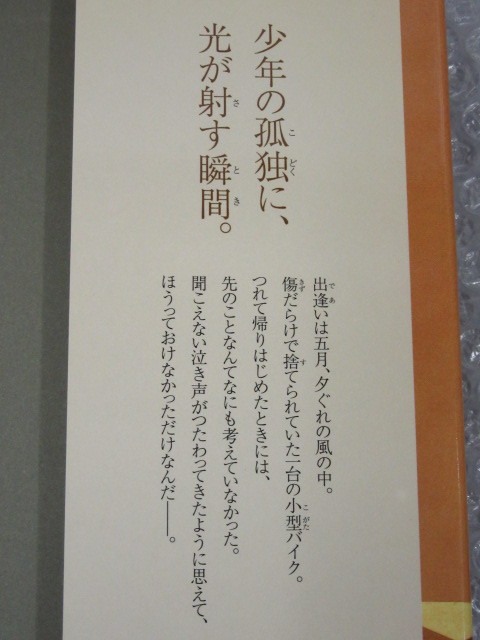 少年の孤独に、
光が射す瞬間。
出逢いは五月、夕ぐれの風の中。
傷だらけで捨てられていた一台の小型バイク。
つれて帰りはじめたときには、
先のことなんてなにも考えていなかった。
聞こえない泣き声がつたわってきたように思えて、
ほうっておけなかっただけなんだ――。